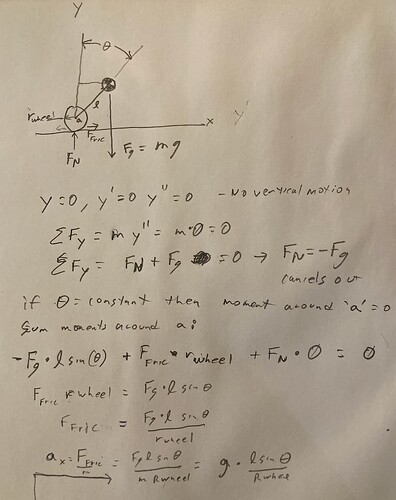 Y
θ
l
rwheel
a
x
y'
F_Fric
F_N
F_g = mg
y=0, y'=0 y''=0 - No vertical motion
ΣF_y = m y'' = m·0 = 0
ΣF_y = F_N + F_g = 0 → F_N = -F_g
cancels out
if θ = constant then moment around 'a' = 0
Sum moments around a:
-F_g · l sin(θ) + F_Fric · rwheel + F_N · 0 = 0
F_Fric rwheel = F_g · l sin θ
F_Fric = F_g · l sin θ / rwheel
a_x = F_Fric / m = F_g l sin θ / m Rwheel = g · l sin θ / Rwheel